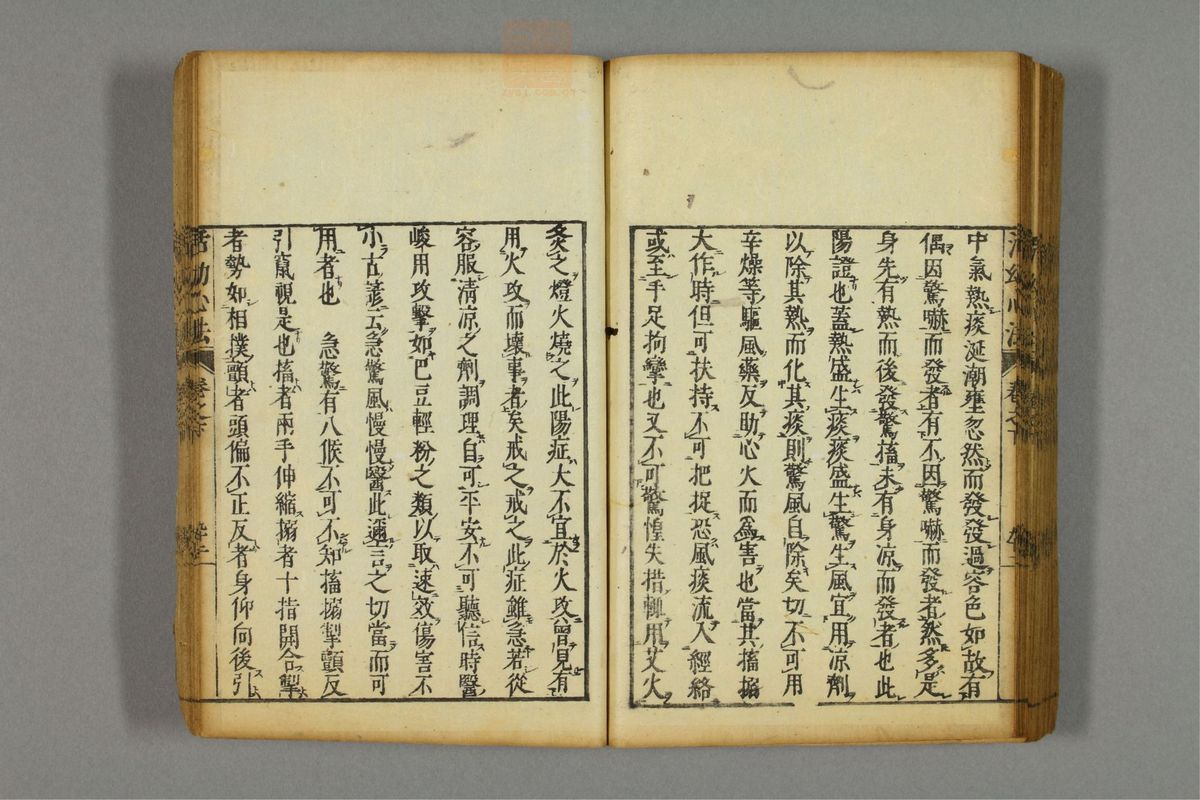 中氣熱痰涎潮壅忽然而發發過容色如故有
偶因驚嚇而發者有不因驚嚇而發者然多是
身先有熱而後發驚搐未有身凉而發者也此
陽證也蓋熱盛生痰痰盛生驚生風宜用凉劑
以除其熱而化其痰則驚風自除矣切不可用
辛燥等驅風藥反助心火而爲害也當其搐搦
大作時但可扶持不可把捉恐風痰流入經絡
或至手足拘攣也又不可驚惶失措輙用艾火
灸之燈火燒之此陽症大不宜於火攻曾見有
用火攻而壞事者矣戒之戒之此症雖急若從
容服清凉之劑調理自可平安不可聽信時醫
峻用攻擊如巴豆輕粉之類以取速效傷害不
小古諺云急驚風慢慢醫此邇言之切當而可
用者也 急驚有八候不可不知搐搦掣顫反
引竄視是也搐者兩手伸縮搦者十指開合掣
者勢如相撲顫者頭偏不正反者身仰向後引
活幼心法 卷之